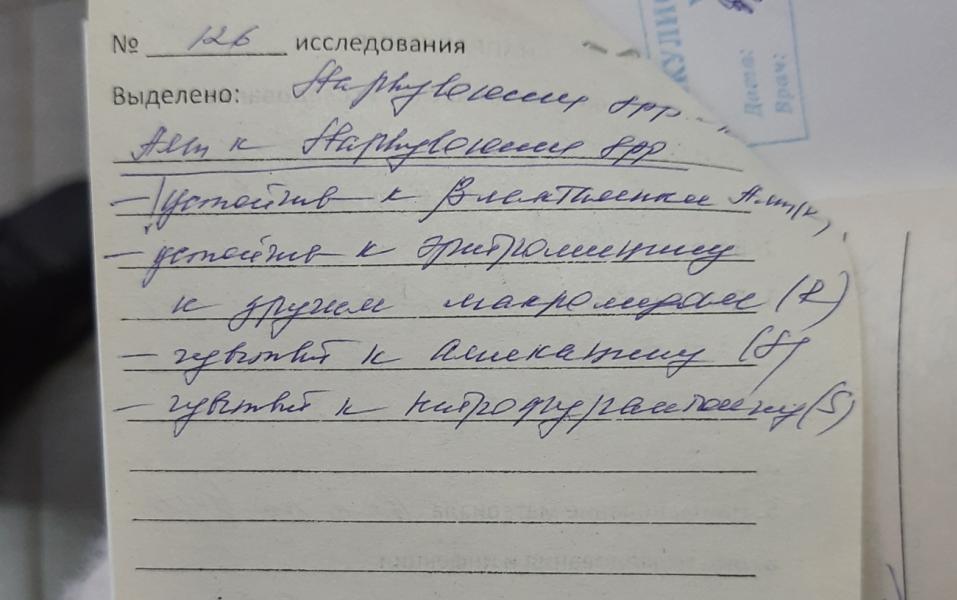 № 126 исследования
Выделено: Staphylococcus spp.
к Staphylococcus spp
- устойчив к β лактамным
- устойчив к эритромицину
к другим макролидам (R)
- чувствит к амикацину (S)
- чувствит к нитрофурантоину (S)
Дата:
Врач: